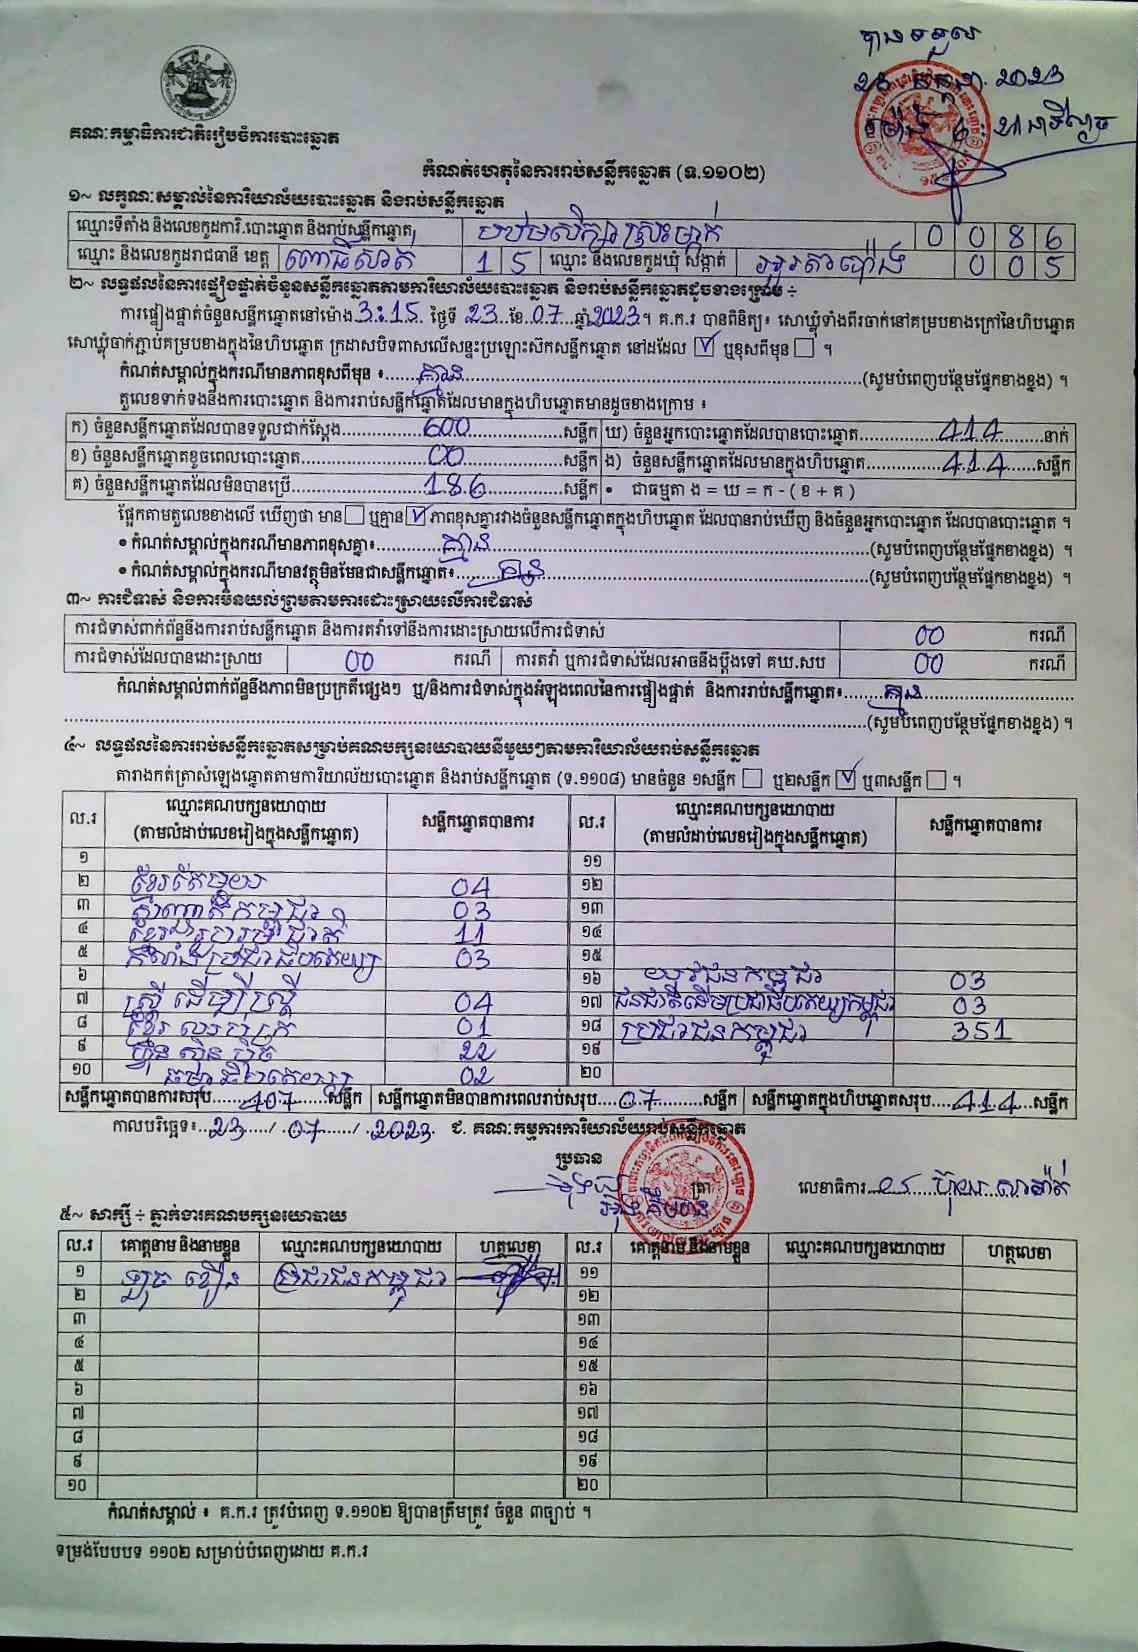 បានទទួល
2023
គណៈកម្មាធិការជាតិរៀបចំការបោះឆ្នោត
កំណត់ហេតុនៃការរាប់សន្លឹកឆ្នោត (ទ.១១០២)
១~ លក្ខណៈសម្គាល់នៃការិយាល័យបោះឆ្នោត និងរាប់សន្លឹកឆ្នោត
ឈ្មោះទីតាំង និងលេខកូដការិ.បោះឆ្នោត និងរាប់សន្លឹកឆ្នោត បឋមសិក្សាស្រះម្កាក់ 0 0 8 6
ឈ្មោះ និងលេខកូដរាជធានី ខេត្ត ពោធិ៍សាត់ 1 5 ឈ្មោះ និងលេខកូដឃុំ សង្កាត់ អូរតាប៉ោង 0 0 5
២~ លទ្ធផលនៃការផ្ទៀងផ្ទាត់ចំនួនសន្លឹកឆ្នោតតាមការិយាល័យបោះឆ្នោត និងរាប់សន្លឹកឆ្នោតដូចខាងក្រោម ÷
ការផ្ទៀងផ្ទាត់ចំនួនសន្លឹកឆ្នោតនៅម៉ោង 3:15 ថ្ងៃទី 23 ខែ 07 ឆ្នាំ 2023។ គ.ក.រ បានពិនិត្យ៖ សោឃ្លុំទាំងពីរចាក់នៅគម្របខាងក្រៅនៃហិបឆ្នោត
សោឃ្លុំចាក់ភ្ជាប់គម្របខាងក្នុងនៃហិបឆ្នោត ក្រដាសបិទពាសលើសន្ទះប្រឡោះស៊កសន្លឹកឆ្នោត នៅដដែល ☑ ឬខុសពីមុន ☐ ។
កំណត់សម្គាល់ក្នុងករណីមានភាពខុសពីមុន ៖ គ្មាន (សូមបំពេញបន្ថែមផ្នែកខាងខ្នង) ។
តួលេខទាក់ទងនឹងការបោះឆ្នោត និងការរាប់សន្លឹកឆ្នោតដែលមានក្នុងហិបឆ្នោតមានដូចខាងក្រោម ៖
ក) ចំនួនសន្លឹកឆ្នោតដែលបានទទួលជាក់ស្ដែង 600 សន្លឹក ឃ) ចំនួនអ្នកបោះឆ្នោតដែលបានបោះឆ្នោត 414 នាក់
ខ) ចំនួនសន្លឹកឆ្នោតខូចពេលបោះឆ្នោត 00 សន្លឹក ង) ចំនួនសន្លឹកឆ្នោតដែលមានក្នុងហិបឆ្នោត 414 សន្លឹក
គ) ចំនួនសន្លឹកឆ្នោតដែលមិនបានប្រើ 186 សន្លឹក • ជាធម្មតា ង = ឃ = ក - ( ខ + គ )
ផ្អែកតាមតួលេខខាងលើ ឃើញថា មាន ☐ ឬគ្មាន ☑ ភាពខុសគ្នារវាងចំនួនសន្លឹកឆ្នោតក្នុងហិបឆ្នោត ដែលបានរាប់ឃើញ និងចំនួនអ្នកបោះឆ្នោត ដែលបានបោះឆ្នោត ។
• កំណត់សម្គាល់ក្នុងករណីមានភាពខុសគ្នា៖ គ្មាន (សូមបំពេញបន្ថែមផ្នែកខាងខ្នង) ។
• កំណត់សម្គាល់ក្នុងករណីមានវត្ថុមិនមែនជាសន្លឹកឆ្នោត៖ គ្មាន (សូមបំពេញបន្ថែមផ្នែកខាងខ្នង) ។
៣~ ការជំទាស់ និងការមិនយល់ព្រមតាមការដោះស្រាយលើការជំទាស់
ការជំទាស់ពាក់ព័ន្ធនឹងការរាប់សន្លឹកឆ្នោត និងការតវ៉ាទៅនឹងការដោះស្រាយលើការជំទាស់ 00 ករណី
ការជំទាស់ដែលបានដោះស្រាយ 00 ករណី ការតវ៉ា ឬការជំទាស់ដែលអាចនឹងប្ដឹងទៅ គឃ.សប 00 ករណី
កំណត់សម្គាល់ពាក់ព័ន្ធនឹងភាពមិនប្រក្រតីផ្សេងៗ ឬ/និងការជំទាស់ក្នុងអំឡុងពេលនៃការផ្ទៀងផ្ទាត់ និងការរាប់សន្លឹកឆ្នោត៖ គ្មាន
(សូមបំពេញបន្ថែមផ្នែកខាងខ្នង) ។
៤~ លទ្ធផលនៃការរាប់សន្លឹកឆ្នោតសម្រាប់គណបក្សនយោបាយនីមួយៗតាមការិយាល័យរាប់សន្លឹកឆ្នោត
តារាងកត់ត្រាសំឡេងឆ្នោតតាមការិយាល័យបោះឆ្នោត និងរាប់សន្លឹកឆ្នោត (ទ.១១០៨) មានចំនួន ១សន្លឹក ☐ ឬ២សន្លឹក ☑ ឬ៣សន្លឹក ☐ ។
ល.រ ឈ្មោះគណបក្សនយោបាយ (តាមលំដាប់លេខរៀងក្នុងសន្លឹកឆ្នោត) សន្លឹកឆ្នោតបានការ ល.រ ឈ្មោះគណបក្សនយោបាយ (តាមលំដាប់លេខរៀងក្នុងសន្លឹកឆ្នោត) សន្លឹកឆ្នោតបានការ
១ ១១
២ ខ្មែរតែមួយ 04 ១២
៣ 03 ១៣
៤ 11 ១៤
៥ កំលាំងប្រជាធិបតេយ្យ 03 ១៥
៦ ១៦ យុវជនកម្ពុជា 03
៧ ស្ត្រីដើម្បីស្ត្រី 04 ១៧ ជនជាតិដើមប្រជាធិបតេយ្យកម្ពុជា 03
៨ 01 ១៨ ប្រជាជនកម្ពុជា 351
៩ ហ៊្វុនស៊ិនប៉ិច 22 ១៩
១០ ធម្មាធិបតេយ្យ 02 ២០
សន្លឹកឆ្នោតបានការសរុប 407 សន្លឹក សន្លឹកឆ្នោតមិនបានការពេលរាប់សរុប 07 សន្លឹក សន្លឹកឆ្នោតក្នុងហិបឆ្នោតសរុប 414 សន្លឹក
កាលបរិច្ឆេទ៖ 23 / 07 / 2023 ជ. គណៈកម្មការការិយាល័យរាប់សន្លឹកឆ្នោត
ប្រធាន
ត្រា លេខាធិការ
៥~ សាក្សី ÷ ភ្នាក់ងារគណបក្សនយោបាយ
ល.រ គោត្តនាម និងនាមខ្លួន ឈ្មោះគណបក្សនយោបាយ ហត្ថលេខា ល.រ គោត្តនាម និងនាមខ្លួន ឈ្មោះគណបក្សនយោបាយ ហត្ថលេខា
១ ប្រជាជនកម្ពុជា ១១
២ ១២
៣ ១៣
៤ ១៤
៥ ១៥
៦ ១៦
៧ ១៧
៨ ១៨
៩ ១៩
១០ ២០
កំណត់សម្គាល់ ៖ គ.ក.រ ត្រូវបំពេញ ទ.១១០២ ឱ្យបានត្រឹមត្រូវ ចំនួន ៣ច្បាប់ ។
ទម្រង់បែបបទ ១១០២ សម្រាប់បំពេញដោយ គ.ក.រ